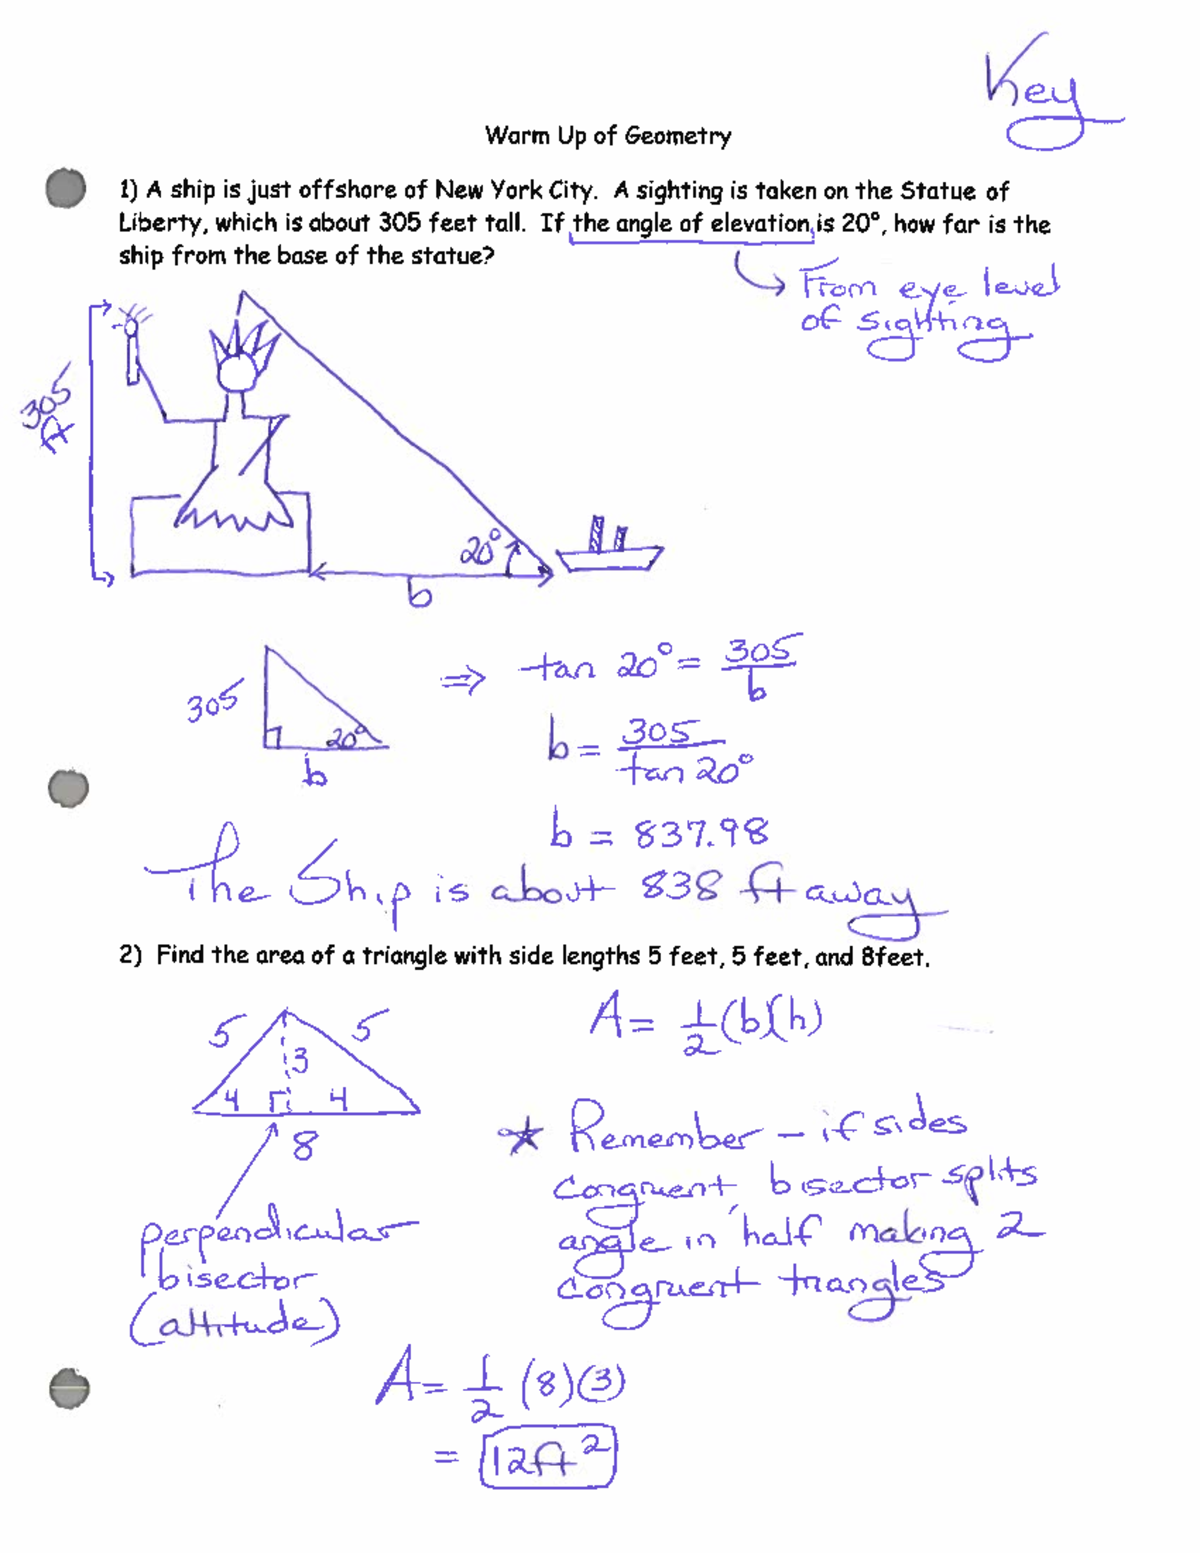 Key
Warm Up of Geometry
1) A ship is just offshore of New York City. A sighting is taken on the Statue of
Liberty, which is about 305 feet tall. If the angle of elevation is 20°, how far is the
ship from the base of the statue?
From eye level
of sighting
305
ft
20°
b
305
20°
b
⇒ tan 20° = 305/b
b = 305/tan 20°
b = 837.98
The Ship is about 838 ft away
2) Find the area of a triangle with side lengths 5 feet, 5 feet, and 8feet.
5 5
3
4 4
8
perpendicular
bisector
(altitude)
A = 1/2 (b)(h)
* Remember - if sides
congruent, bisector splits
angle in half making 2
congruent triangles
A = 1/2 (8)(3)
= 12ft²